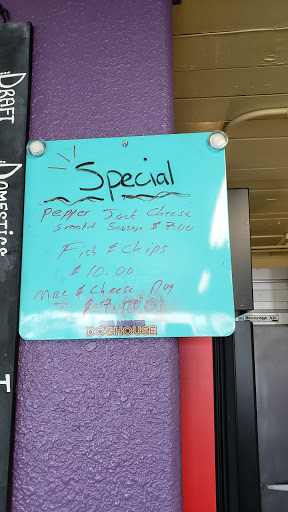 DRAFT
DOMESTICS
Special
Pepper Jack Cheese
Smoked Sausage $7.00
Fish & Chips
$10.00
Mac & Cheese Dog
DOGHOUSE
Beverage Air